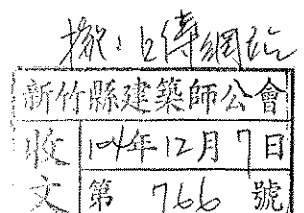 擬：上傳網站
新竹縣建築師公會
收文
104年12月7日
第 766 號